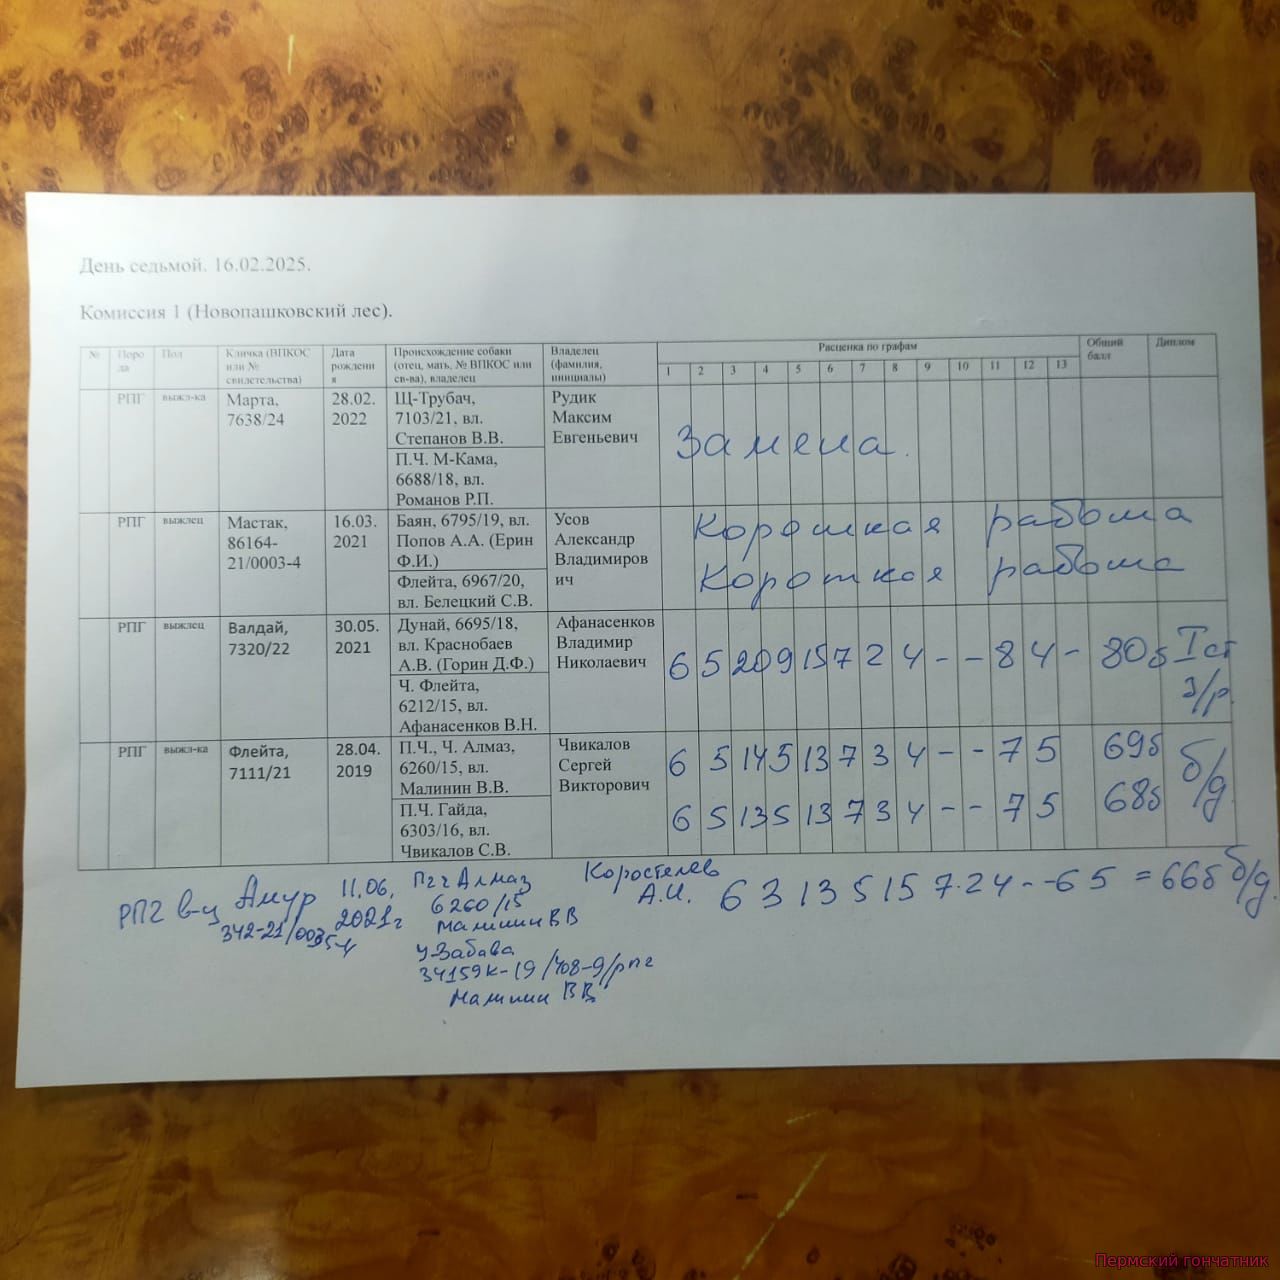 День седьмой. 16.02.2025.
Комиссия 1 (Новопашковский лес).
№ Поро да Пол Кличка (ВПКОС или № свидетельства) Дата рождени я Происхождение собаки (отец, мать, № ВПКОС или св-ва), владелец Владелец (фамилия, инициалы) Расценка по графам Общий балл Диплом
1 2 3 4 5 6 7 8 9 10 11 12 13
РПГ выжл-ка Марта, 28.02. Щ-Трубач, Рудик
7638/24 2022 7103/21, вл. Максим
Степанов В.В. Евгеньевич
Замена.
П.Ч. М-Кама,
6688/18, вл.
Романов Р.П.
РПГ выжлец Мастак, 16.03. Баян, 6795/19, вл. Усов Короткая работа
86164- 2021 Попов А.А. (Ерин Александр
21/0003-4 Ф.И.) Владимиров
Флейта, 6967/20, ич Короткая работа
вл. Белецкий С.В.
РПГ выжлец Валдай, 30.05. Дунай, 6695/18, Афанасенков
7320/22 2021 вл. Краснобаев Владимир
А.В. (Горин Д.Ф.) Николаевич 6 5 20 9 15 7 2 4 - - 8 4 - 80б Iст
Ч. Флейта, з/р.
6212/15, вл.
Афанасенков В.Н.
РПГ выжл-ка Флейта, 28.04. П.Ч., Ч. Алмаз, Чвикалов 6 5 14 5 13 7 3 4 - - 7 5 69б б/д.
7111/21 2019 6260/15, вл. Сергей
Малинин В.В. Викторович
П.Ч. Гайда, 6 5 13 5 13 7 3 4 - - 7 5 68б
6303/16, вл.
Чвикалов С.В.
РПГ в-ц Амур 11.06. Пч ч Алмаз Коростелев
2021г 6260/15 А.И. 6 3 13 5 15 7 2 4 - - 6 5 = 66б б/д.
342-21/0035-4 Малинин ВВ
Ч-Забава
34159к-19/408-9/рпг
Малинин ВВ
Пермский гончатник